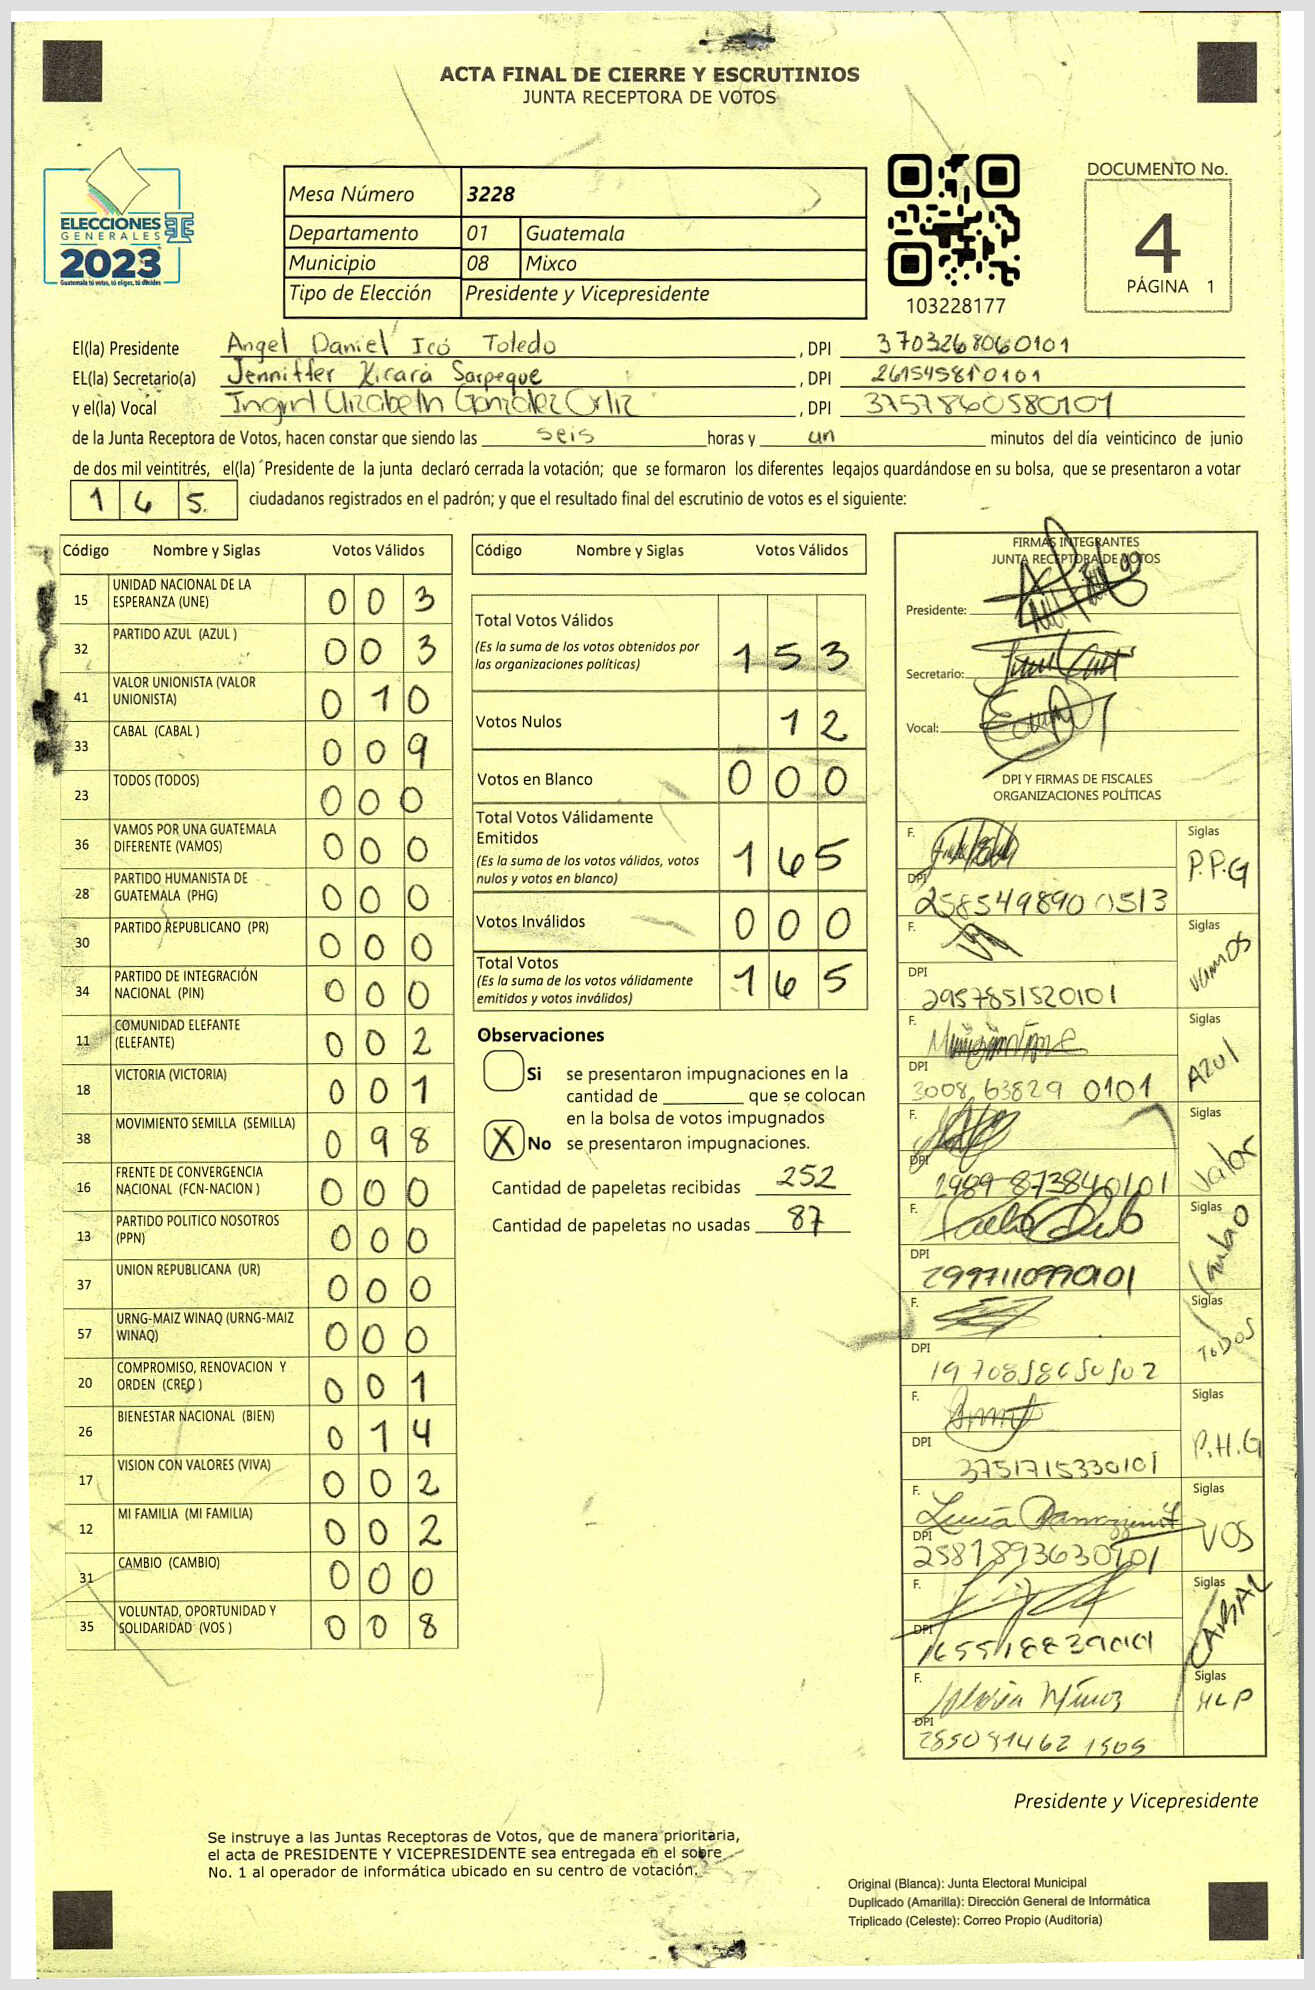 ACTA FINAL DE CIERRE Y ESCRUTINIOS
JUNTA RECEPTORA DE VOTOS
ELECCIONES
GENERALES
2023
Guatemala tú votas, tú eliges, tú decides
Mesa Número 3228
Departamento 01 Guatemala
Municipio 08 Mixco
Tipo de Elección Presidente y Vicepresidente
103228177
DOCUMENTO No.
4
PÁGINA 1
El(la) Presidente Angel Daniel Icó Toledo , DPI 3703268060101
EL(la) Secretario(a) Jenniffer Xicará Sarpeque , DPI 261545810101
y el(la) Vocal Ingrid Elizabeth González Ortiz , DPI 3757860580101
de la Junta Receptora de Votos, hacen constar que siendo las seis horas y un minutos del día veinticinco de junio
de dos mil veintitrés, el(la) Presidente de la junta declaró cerrada la votación; que se formaron los diferentes legajos guardándose en su bolsa, que se presentaron a votar
165. ciudadanos registrados en el padrón; y que el resultado final del escrutinio de votos es el siguiente:
Código Nombre y Siglas Votos Válidos
15 UNIDAD NACIONAL DE LA ESPERANZA (UNE) 003
32 PARTIDO AZUL (AZUL ) 003
41 VALOR UNIONISTA (VALOR UNIONISTA) 010
33 CABAL (CABAL ) 009
23 TODOS (TODOS) 000
36 VAMOS POR UNA GUATEMALA DIFERENTE (VAMOS) 000
28 PARTIDO HUMANISTA DE GUATEMALA (PHG) 000
30 PARTIDO REPUBLICANO (PR) 000
34 PARTIDO DE INTEGRACIÓN NACIONAL (PIN) 000
11 COMUNIDAD ELEFANTE (ELEFANTE) 002
18 VICTORIA (VICTORIA) 001
38 MOVIMIENTO SEMILLA (SEMILLA) 098
16 FRENTE DE CONVERGENCIA NACIONAL (FCN-NACION ) 000
13 PARTIDO POLITICO NOSOTROS (PPN) 000
37 UNION REPUBLICANA (UR) 000
57 URNG-MAIZ WINAQ (URNG-MAIZ WINAQ) 000
20 COMPROMISO, RENOVACION Y ORDEN (CREO ) 001
26 BIENESTAR NACIONAL (BIEN) 014
17 VISION CON VALORES (VIVA) 002
12 MI FAMILIA (MI FAMILIA) 002
31 CAMBIO (CAMBIO) 000
35 VOLUNTAD, OPORTUNIDAD Y SOLIDARIDAD (VOS ) 008
Código Nombre y Siglas Votos Válidos
Total Votos Válidos
(Es la suma de los votos obtenidos por
las organizaciones políticas) 153
Votos Nulos 12
Votos en Blanco 000
Total Votos Válidamente
Emitidos
(Es la suma de los votos válidos, votos
nulos y votos en blanco) 165
Votos Inválidos 000
Total Votos
(Es la suma de los votos válidamente
emitidos y votos inválidos) 165
Observaciones
Si se presentaron impugnaciones en la
cantidad de ________ que se colocan
en la bolsa de votos impugnados
X No se presentaron impugnaciones.
Cantidad de papeletas recibidas 252
Cantidad de papeletas no usadas 87
FIRMAS INTEGRANTES
JUNTA RECEPTORA DE VOTOS
Presidente:
Secretario:
Vocal:
DPI Y FIRMAS DE FISCALES
ORGANIZACIONES POLÍTICAS
F. Siglas P.P.G
DPI 2585498900513
F. Siglas Vamos
DPI 2957851520101
F. Siglas AZUL
DPI 3008 63829 0101
F. Siglas Valor
DPI 2989 873840101
F. Siglas
DPI 2997110990101
F. Siglas TODOS
DPI
F. Siglas P.H.G
DPI 3751715330101
F. Lucía Siglas VOS
DPI 2587893630101
F. Siglas CABAL
DPI
F. Siglas MLP
DPI
Presidente y Vicepresidente
Se instruye a las Juntas Receptoras de Votos, que de manera prioritaria,
el acta de PRESIDENTE Y VICEPRESIDENTE sea entregada en el sobre
No. 1 al operador de informática ubicado en su centro de votación.
Original (Blanca): Junta Electoral Municipal
Duplicado (Amarilla): Dirección General de Informática
Triplicado (Celeste): Correo Propio (Auditoria)